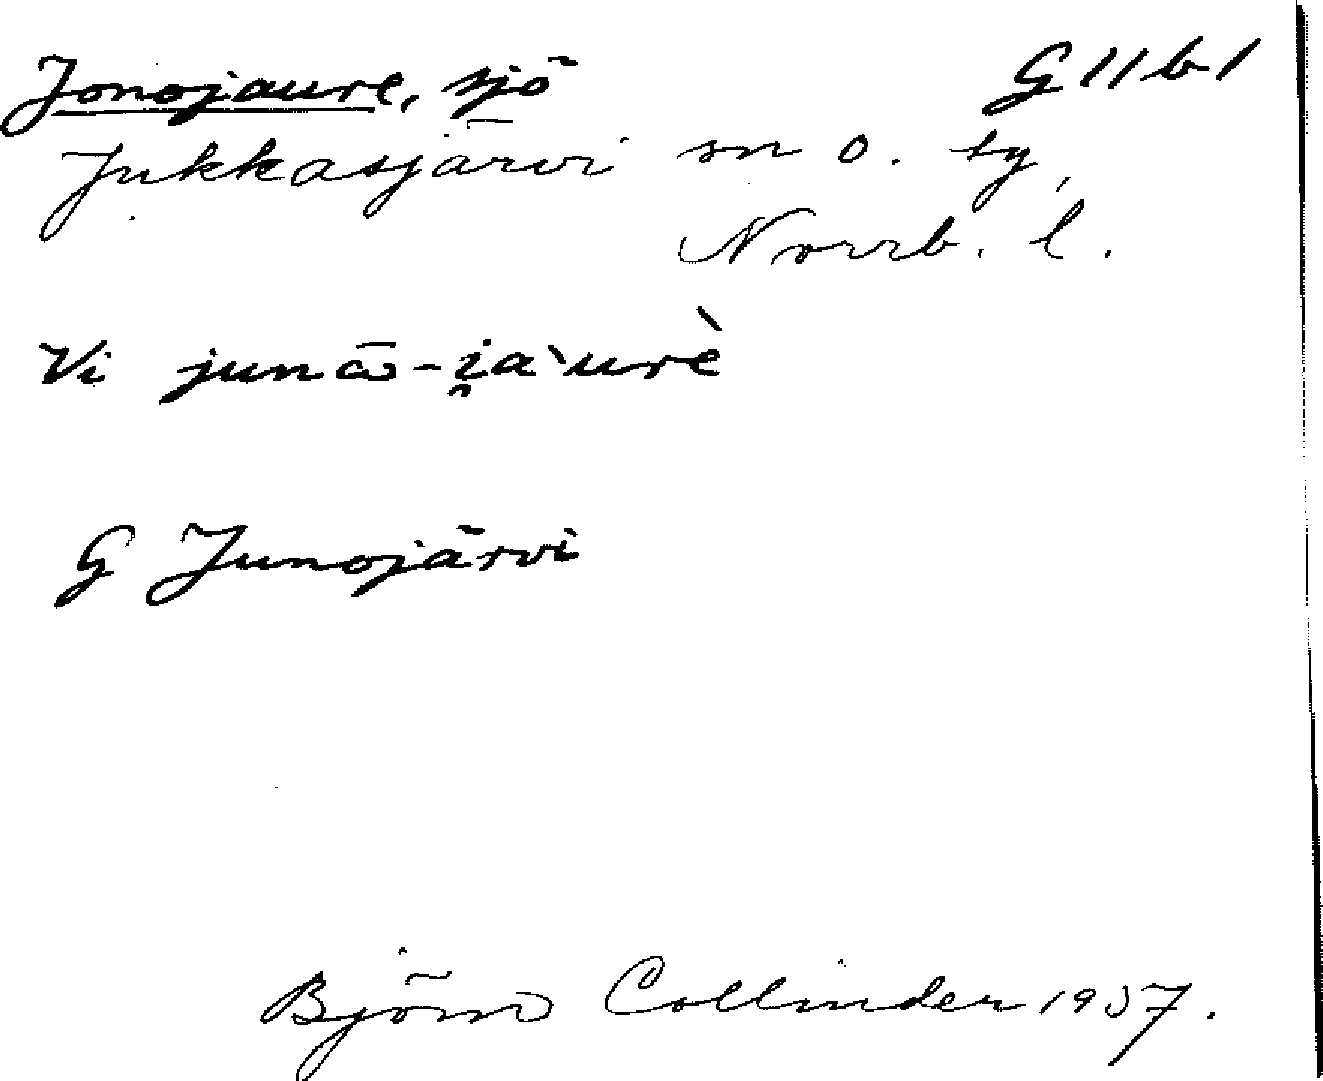 Jonojaure, sjö G 11 b 1
Jukkasjärvi sn o. ty,
Norrb. l.
Vi junɷ̄-i̯a`urè
G Junojärvi
Björn Collinder 1957.